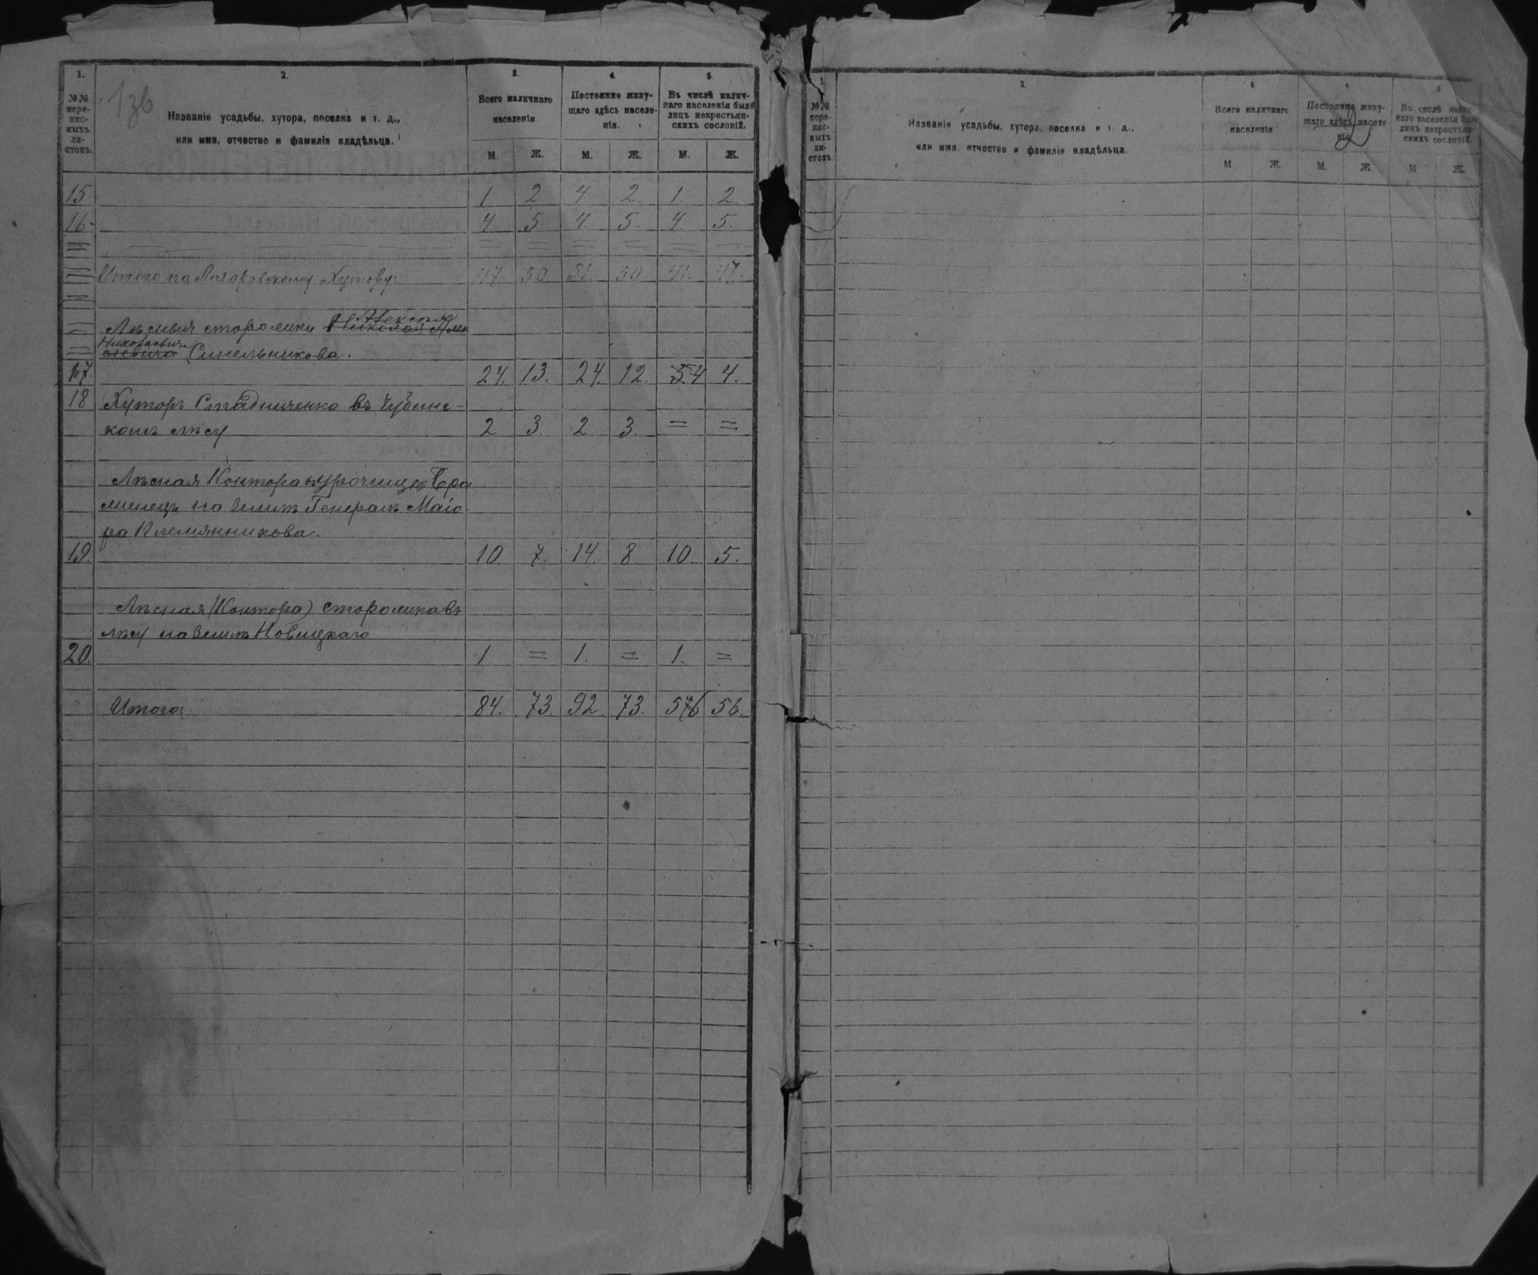 1.
2.
3.
4.
5.
№№ пере-
пис-
ныхъ
ли-
стовъ.
136
Названіе усадьбы, хутора, поселка и т. д.,
или имя, отчество и фамилія владѣльца.
Всего наличнаго
населенія
Постоянно живу-
щаго здѣсь населе-
нія.
Въ числѣ налич-
наго населенія было
лицъ некрестьян-
скихъ сословій.
М. Ж. М. Ж. М. Ж.
15 1 2 4 2 1 2
16 4. 5 4. 5. 4 5.
Итого по Хутору: 47. 50. 51. 50 41. 47.
Алексѣя
Лѣсныя сторожки Николая Алек
Николаевича
сѣевича Синельникова.
17 24. 13. 24. 12. 54 4.
18 Хуторъ Стадниченко въ Чубинс-
комъ лѣсу 2 3. 2 3. = =
Лѣсная Контора
на землѣ Генералъ Маіо
ра Племянникова.
19. 10 7. 14. 8. 10. 5.
Лѣсная (Контора) сторожка въ
лѣсу на землѣ Новицкаго
20. 1 = 1. = 1. =
Итого: 84. 73. 92. 73. 576 56.
№№
пере-
пис-
ныхъ
ли-
стовъ.
Названіе усадьбы, хутора, поселка и т. д.,
или имя, отчество и фамилія владѣльца.
Всего наличнаго
населенія
Постоянно живу-
щаго здѣсь населе-
нія
Въ числѣ налич-
наго населенія было
лицъ некрестьян-
скихъ сословій.
М Ж. М. Ж. М Ж.